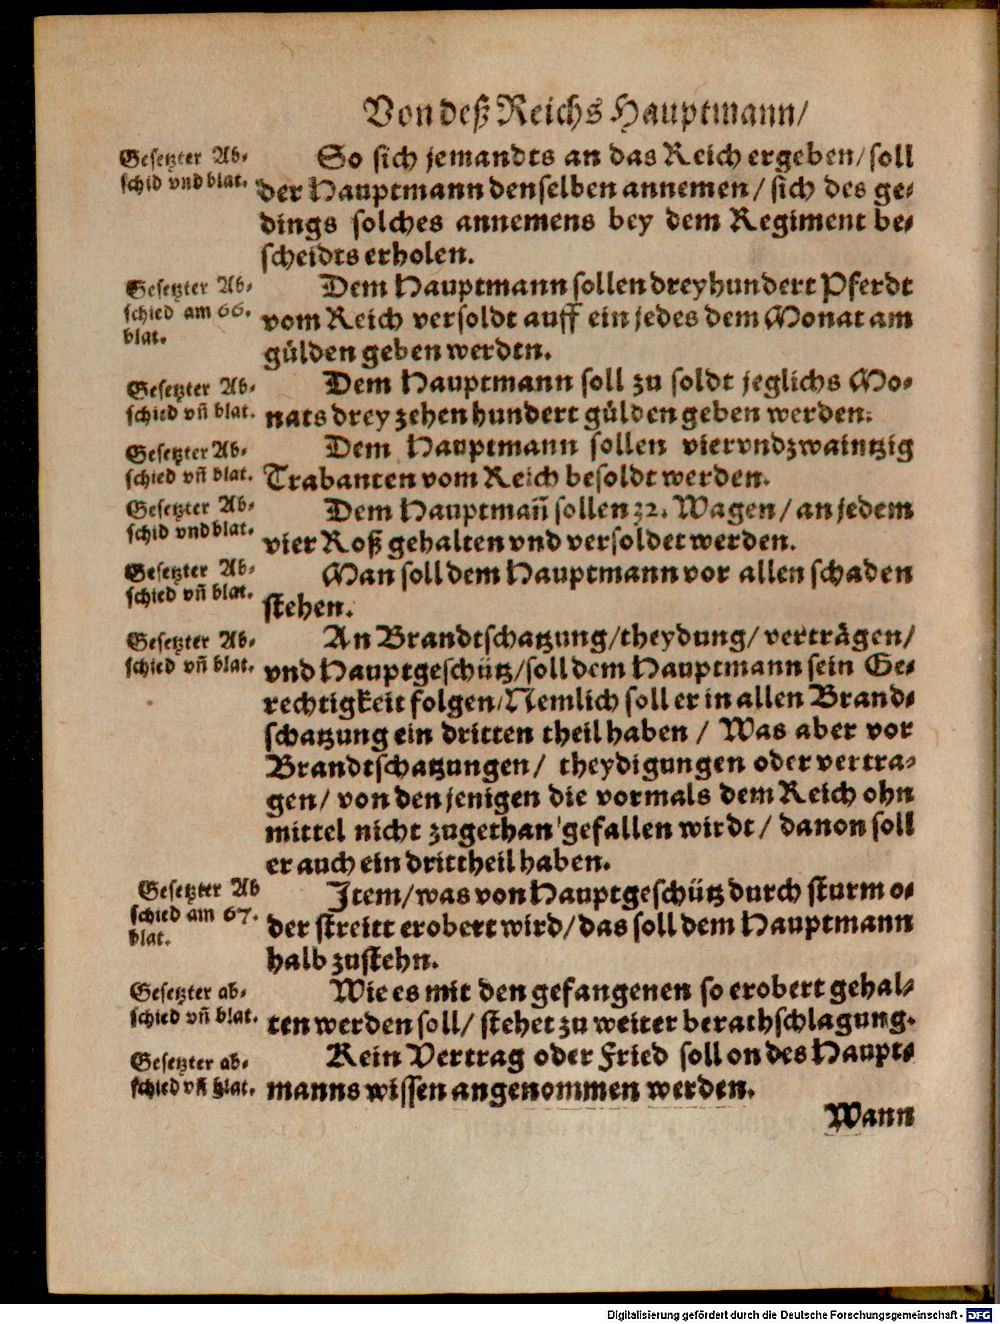 Von deß Reichs Hauptmann/
Gesetzter Ab-
schid vnd blat.
So sich jemandts an das Reich ergeben/ soll
der Hauptmann denselben annemen/ sich des ge-
dings solches annemens bey dem Regiment be-
scheidts erholen.
Gesetzter Ab-
schied am 66.
blat.
Dem Hauptmann sollen dreyhundert Pferdt
vom Reich versoldt auff ein jedes dem Monat am
gülden geben werden.
Gesetzter Ab-
schied vñ blat.
Dem Hauptmann soll zu soldt jeglichs Mo-
nats drey zehen hundert gülden geben werden.
Gesetzter Ab-
schied vñ blat.
Dem Hauptmann sollen viervndzwaintzig
Trabanten vom Reich besoldt werden.
Gesetzter Ab-
schid vnd blat.
Dem Hauptmañ sollen 32. Wagen/ an jedem
vier Roß gehalten vnd versoldet werden.
Gesetzter Ab-
schied vñ blat.
Man soll dem Hauptmann vor allen schaden
stehen.
Gesetzter Ab-
schied vñ blat.
An Brandtschatzung/ theydung/ verträgen/
vnd Hauptgeschütz/ soll dem Hauptmann sein Ge-
rechtigkeit folgen/ Nemlich soll er in allen Brand-
schatzung ein dritten theil haben/ Was aber vor
Brandtschatzungen/ theydigungen oder vertra-
gen/ von denjenigen die vormals dem Reich ohn
mittel nicht zugethan gefallen wirdt/ danon soll
er auch ein drittheil haben.
Gesetzter Ab
schied am 67.
blat.
Item/ was von Hauptgeschütz durch sturm o-
der streitt erobert wird/ das soll dem Hauptmann
halb zustehn.
Gesetzter ab-
schied vñ blat.
Wie es mit den gefangenen so erobert gehal-
ten werden soll/ stehet zu weiter berathschlagung.
Gesetzter ab-
schied vñ blat.
Kein Vertrag oder Fried soll on des Haupt-
manns wissen angenommen werden.
Wann
Digitalisierung gefördert durch die Deutsche Forschungsgemeinschaft - DFG